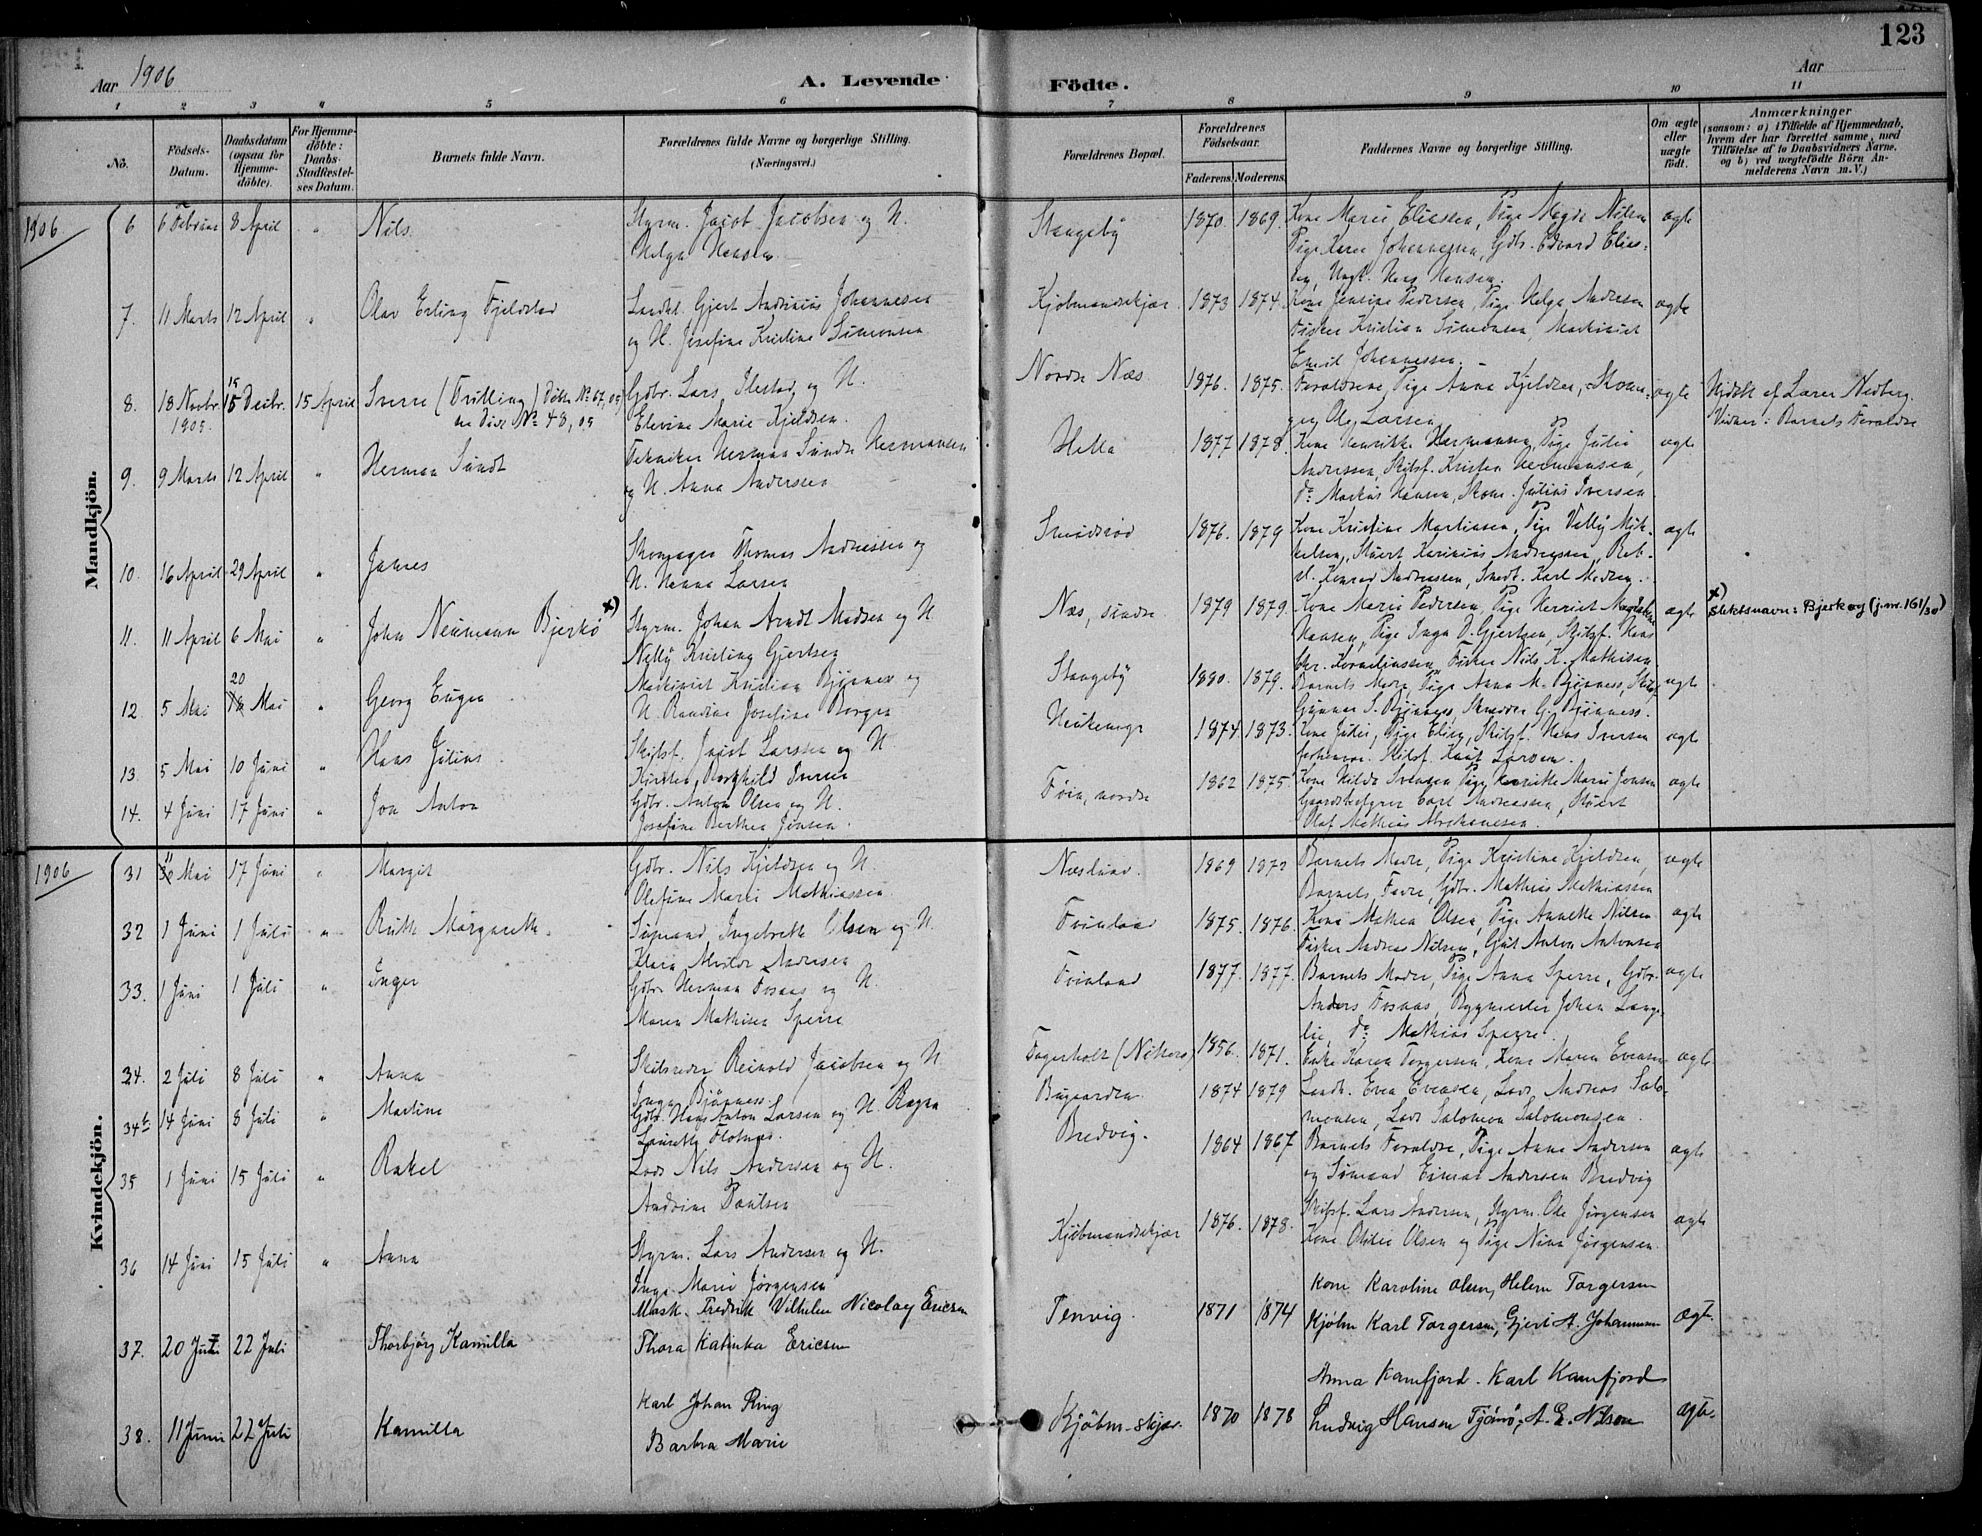 123
Aar 1906
A. Levende
Födte.
Aar
1 2 3 4 5 6 7 8 9 10 11
No.
Födsels-Datum.
Daabsdatum (ogsaa for Hjemme-döbte).
For Hjemme-döbte: Daabs-Stadfæstel-ses Datum.
Barnets fulde Navn.
Forældrenes fulde Navne og borgerlige Stilling. (Næringsvei.)
Forældrenes Bopæl.
Forældrenes Födselsaar.
Faderens. Moderens.
Faddernes Navne og borgerlige Stilling.
Om ægte eller uægte födt.
Anmærkninger
(saasom: a) i Tilfælde af Hjemmedaab,
hvem der har forrettet samme, med
Tilföielse af to Daabsvidners Navne,
og b) ved uægtefödte Börn An-
melderens Navn m.V.)
Mandkjön.
1906
6 6 Februar 8 April " Nils
Styrm. Jacob Jacobsen og H.
Helga Hansen
Stangeby 1870. 1869.
Kone Marie Eliassen, Pige Magda Nilsen
Pige Karen Johannessen, Gdb. Edvard Elias-
sen, Ungk. Hans Hansen.
ægte
7. 11 Marts 12 April " Olav Erling Fjeldstad
Landh. Gjert Andreas Johannesen
og H. Josefine Kristine Simonsen
Kjöbmandskjær. 1873 1874.
Kone Jensine Pedersen, Pige Helga Andersen
Fisker Kristian Simonsen, Maskinist
Emil Johannessen.
ægte
8. 18 Novbr. 1905. 15 Decbr. 15 April Sverre (Trilling) Döbte No 67, 05
en Död No 48, 05
Gdbr. Lars Ilestad og H.
Elevine Marie Kjeldsen.
Nordre Næs 1876. 1875.
Forældrene, Pige Anna Kjeldsen, Skoma-
ger Ole Larsen
ægte
Hjdbt. af Lærer Hedberg.
Vidner: Barnets Forældre
9. 9 Marts 12 April " Herman Sundt
Tekniker Herman Sundt Hermansen
og H. Anna Andersen
Hella 1877 1878
Kone Henrikke Hermansen, Pige Julia
Anderssen, Skibsf. Kristen Hermansen,
do Markus Hansen, Skom. Julius Iversen
ægte
10. 16 April 29 April " James
Skomager Thomas Andreassen og
H. Hanna Larsen
Smidsröd 1876. 1879
Kone Kristine Martinsen, Pige Valby Mik-
kelsen, Stuert Karinius Andreassen, Reb-
sl. Konrad Andreassen, Smed. Karl Madsen.
ægte
11. 11 April 6 Mai " John Neumann Bjerkö x)
Styrm. Johan Arndt Madsen og H
Nelly Kristine Gjertsen
Næs, söndre 1879 1879.
Kone Marie Pedersen, Pige Herriet Magdalene
Hansen, Pige Inga D. Gjertsen, Skibsf. Hans
Chr. Korneliussen, Fisker Nils K. Mathisen.
ægte
x) Slektsnavn: Bjerkøy (j.nr. 161/30)
12. 5 Mai 20 Mai " Georg Eugen
Maskinist Kristian Bjönnes og
H. Randine Josefine Borgen
Stangeby 1880. 1879.
Barnets Moder, Pige Anna M. Bjönness, Skibsf.
Gunnar S. Bjönness, Skræder G. Bjönness.
ægte
13. 5 Mai 10 Juni " Hans Julius
Skibsf. Jacob Larsen og H.
Kirsten Borghild Iversen
1874 1873.
Kone Julie, Pige Elisa, Skibsf. Hans Iversen
Skibsf. Knut Larsen.
ægte
14. 4 Juni 17 Juni " Jon Anton
Gdbr. Anton Olsen og H.
Josefine Berthea Jensen.
Föin, nordre 1862 1875
Kone Hilda Svensen, Pige Henrikke Marie Jensen
Gaardsbestyrer Carl Andreassen, Stuert
Olaf Mathias Abrahamsen.
ægte
Kvindekjön.
1906
31 11 Mai 17 Juni " Margit
Gdbr. Nils Kjeldsen og H.
Olefine Marie Mathiassen
1869 1872
Barnets Moder, Pige Kristine Kjeldsen,
Barnets Fader, Gdbr. Mathias Mathiassen
ægte
32 1 Juni 1 Juli " Ruth Margareth.
Sömand Ingebrethe Olsen og H.
Klara Alvilde Andersen
Föinland 1875. 1876.
Kone Mathea Olsen, Pige Annette Nilsen
Fisker Andreas Nilsen, Gjest Anton Antonsen
ægte
33. 1 Juni 1 Juli " Inger
Gdbr. Herman Fossaas og H.
Maren Mathisen Sperre
Föinland 1877. 1877.
Barnets Moder, Pige Anna Sperre, Gdbr.
Anders Fosnaas, Byggmester Johan Lange-
lie, do Mathias Sperre.
ægte
34. 2 Juli 8 Juli " Anna
Skibsreder Reinold Jacobsen og H
Inga Bjönness.
Fagerholt (Nötterö) 1856. 1871.
Enke Karen Torgersen, Kone Maren Evensen
ægte
34b 14 Juni 8 Juli " Martine
Gdbr. Hans Anton Larsen og H. Ragna
Laurette Flotness.
Bugaarden 1874 1879
Landh. Even Evensen, Lods Andreas Salo-
monsen, Lods Salomon Salomonsen.
35 1 Juni 15 Juli " Rakel
Lods Nils Andersen og H.
Andrine Paulsen
Bredvig. 1864 1867
Barnets Forældre, Pige Anna Andersen
og Sömand Einar Andersen Bredvig
ægte
36 14 Juni 15 Juli " Anna
Styrm. Lars Andersen og H.
Inga Marie Jörgensen
Kjöbmandskjær 1876. 1878.
Skibsf. Lars Andersen, Styrm. Ole Jörgensen
Kone Otilie Olsen og Pige Nina Jörgensen.
ægte
37. 20 Juni 22 Juli Thorbjörg Kamilla
Mask. Fredrik Vilhelm Nicolay Ericsen
Thora Katinka Ericsen
Tenvig. 1871 1874
Kone Karoline Olsen, Helene Torgersen
Kjöbm Karl Torgersen, Gjert A. Johannesen
ægte.
38. 11 Juni 22 Juli Kamilla
Karl Johan Ring
Barbra Marie
Kjöbm-skjær. 1870 1878
Anna Kamfjord. Karl Kamfjord
Ludvig Hansen Tjömö, A. E. Nilsen
ægte.